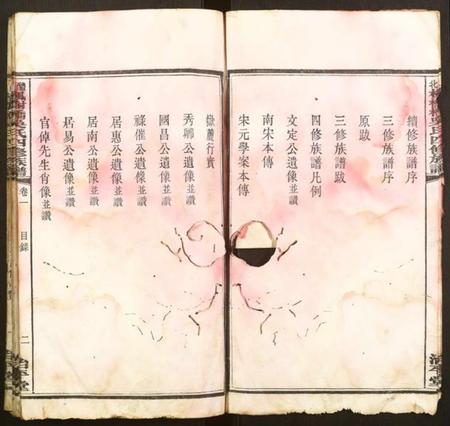 續修族譜序
三修族譜序
原跋
三修族譜跋
四修族譜凡例
文定公遺像並讚
南宋本傳
宋元學案本傳
傲麓行實
秀卿公遺像並讚
國昌公遺像並讚
祿催公遺像並讚
居惠公遺像並讚
居南公遺像並讚
居易公遺像並讚
官倬先生肖像並讚
氏四修族譜
卷一
目錄
二